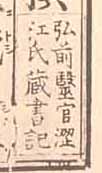 弘前毉官澀
江氏藏書記